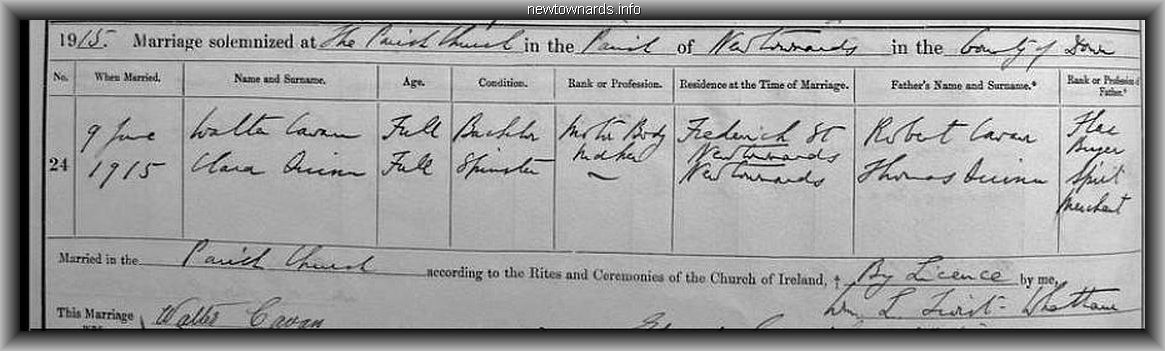 newtownards.info
1915. Marriage solemnized at The Parish Church in the Parish of Newtownards in the County of Down
No. When Married. Name and Surname. Age. Condition. Rank or Profession. Residence at the Time of Marriage. Father's Name and Surname.* Rank or Profession of Father.*
24 9 June 1915 Walter Cavan Full Bachelor Motor Body Maker Frederick St Newtownards Robert Cavan Flax Buyer
Clara Quinn Full Spinster — Newtownards Thomas Quinn Spirit Merchant
Married in the Parish Church according to the Rites and Ceremonies of the Church of Ireland, † By Licence by me,
Wm L. Twist-Whatham
This Marriage Walter Cavan
was